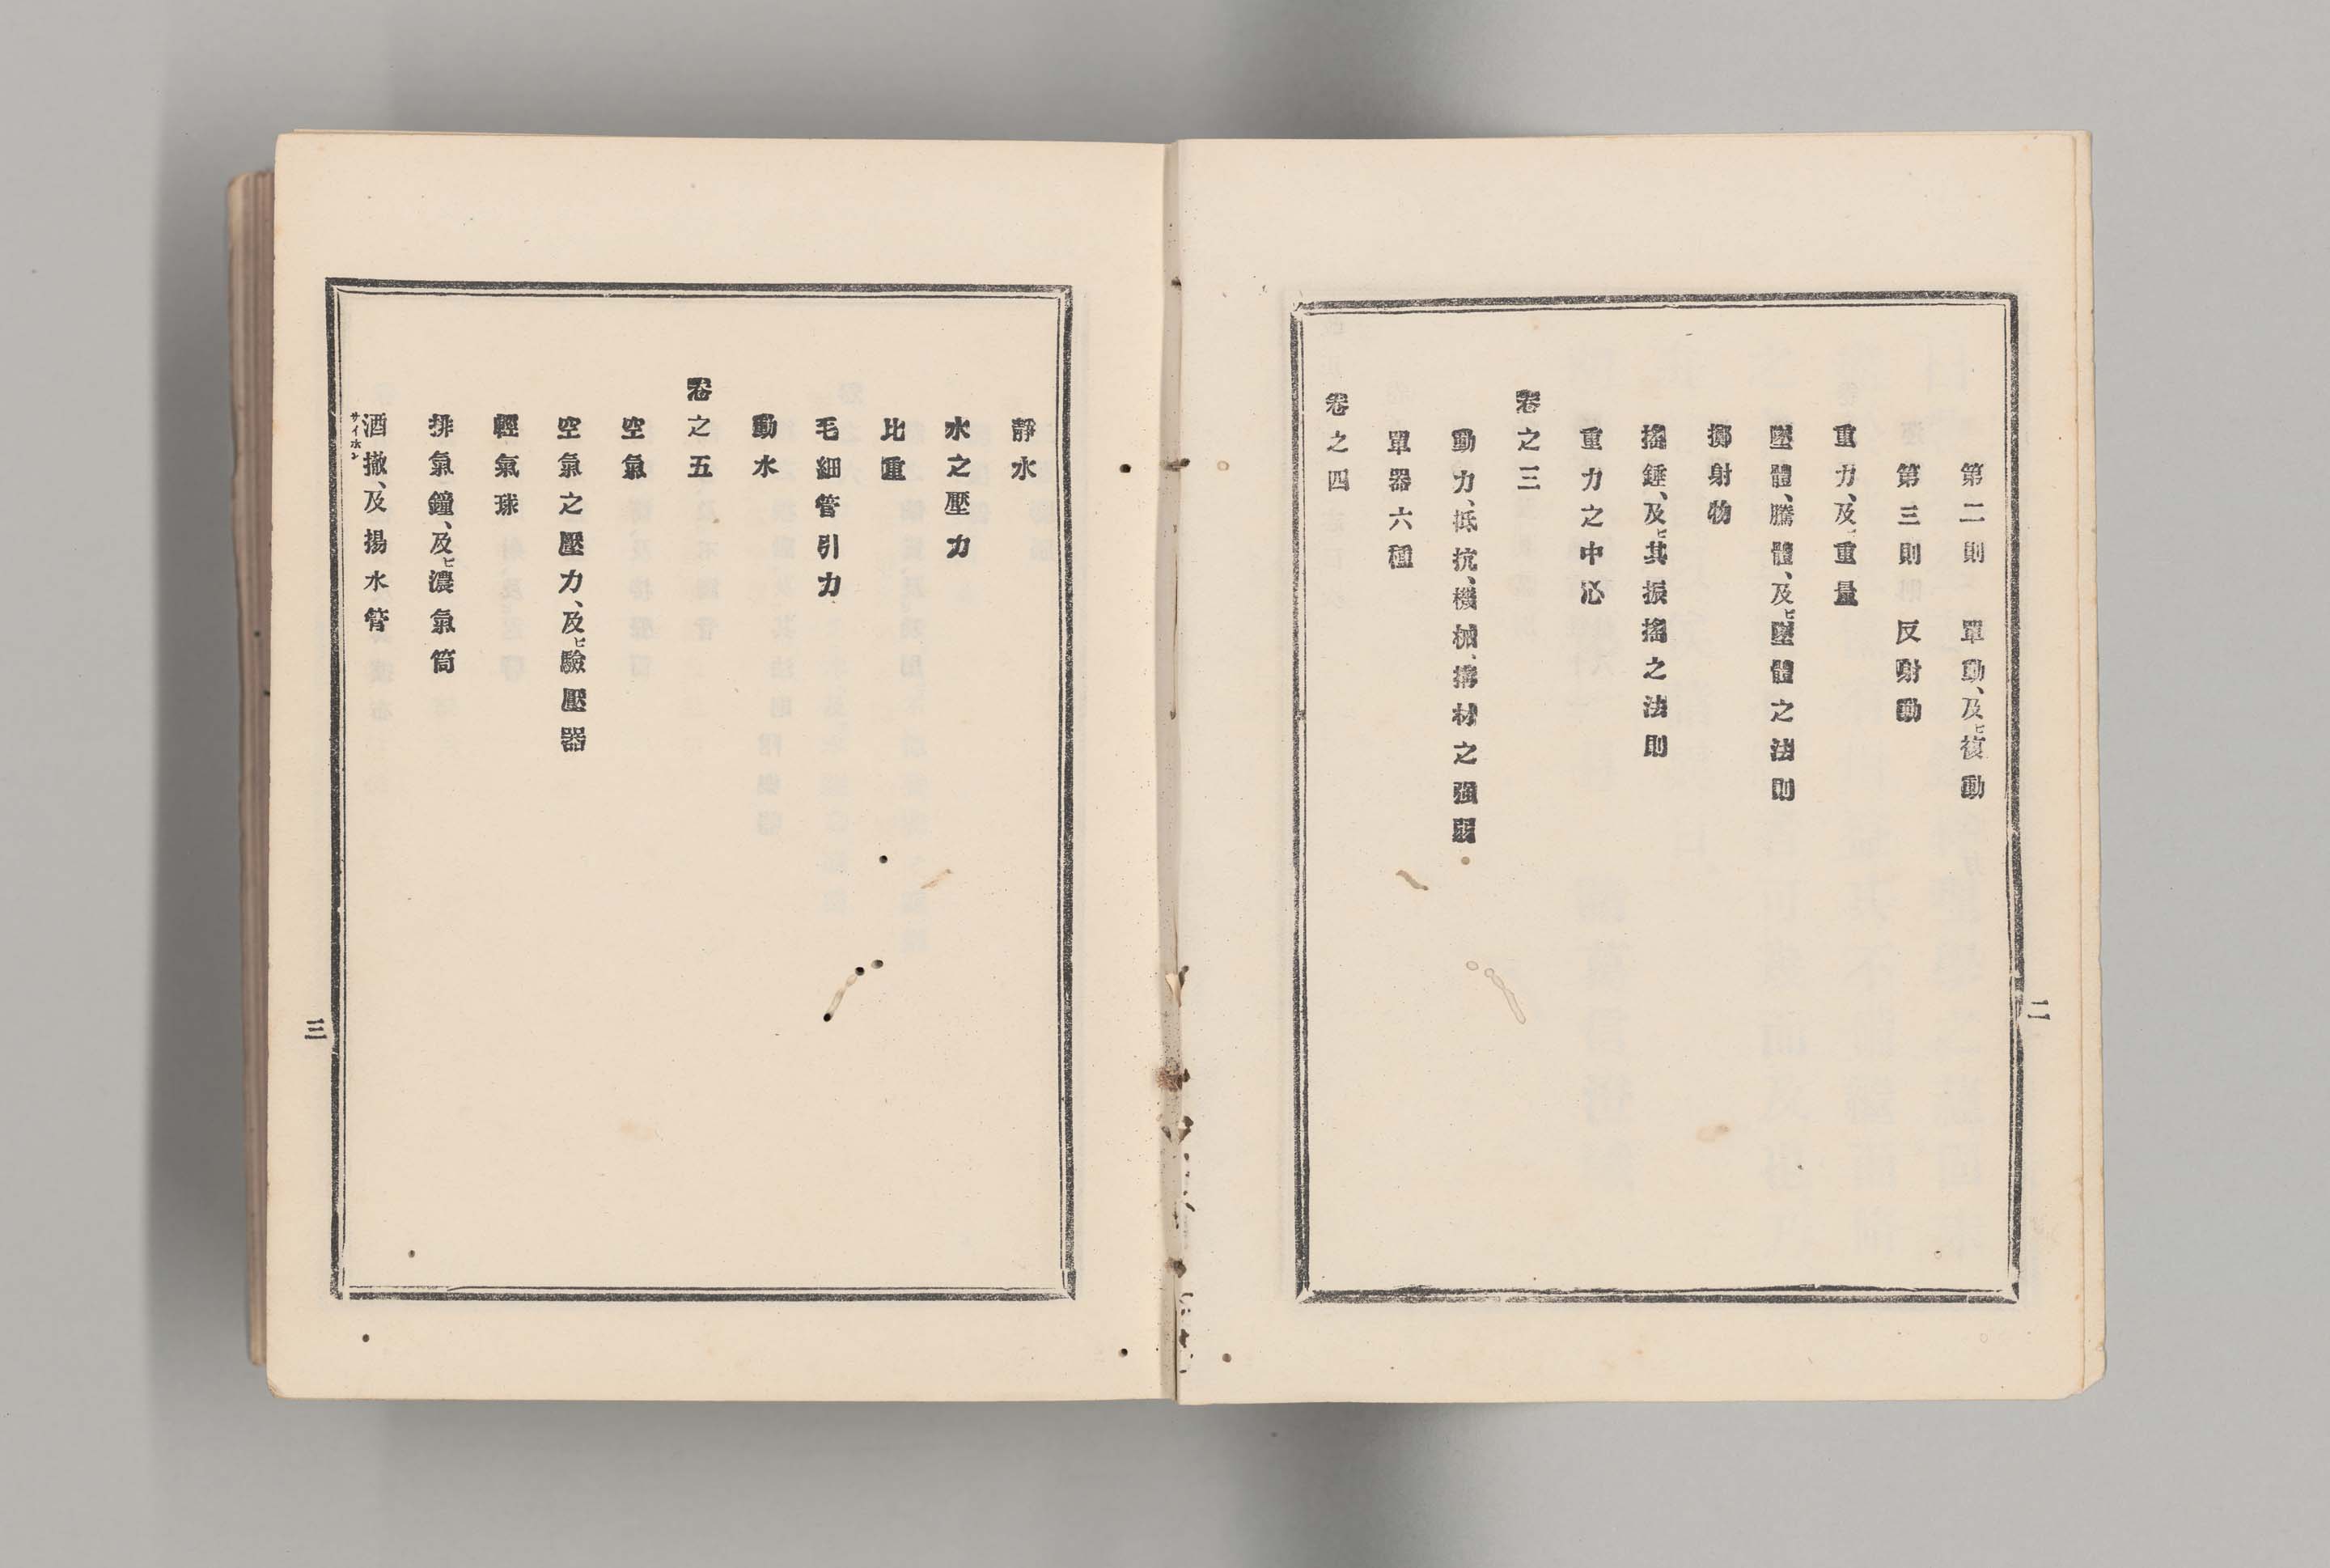 第二則　單動、及ヒ復動
第三則　反射動
重力、及ヒ重量
墜體、騰體、及ヒ墜體之法則
擲射物
搖錘、及ヒ其振搖之法則
重力之中心
卷之三
動力、抵抗、機械、搆材之强弱
單器六種
卷之四
二
靜水
水之壓力
比重
毛細管引力
動水
卷之五
空氣
空氣之壓力、及ヒ驗壓器
輕氣球
排氣鐘、及ヒ濃氣筒
酒撤、及揚水管
サイホン
三